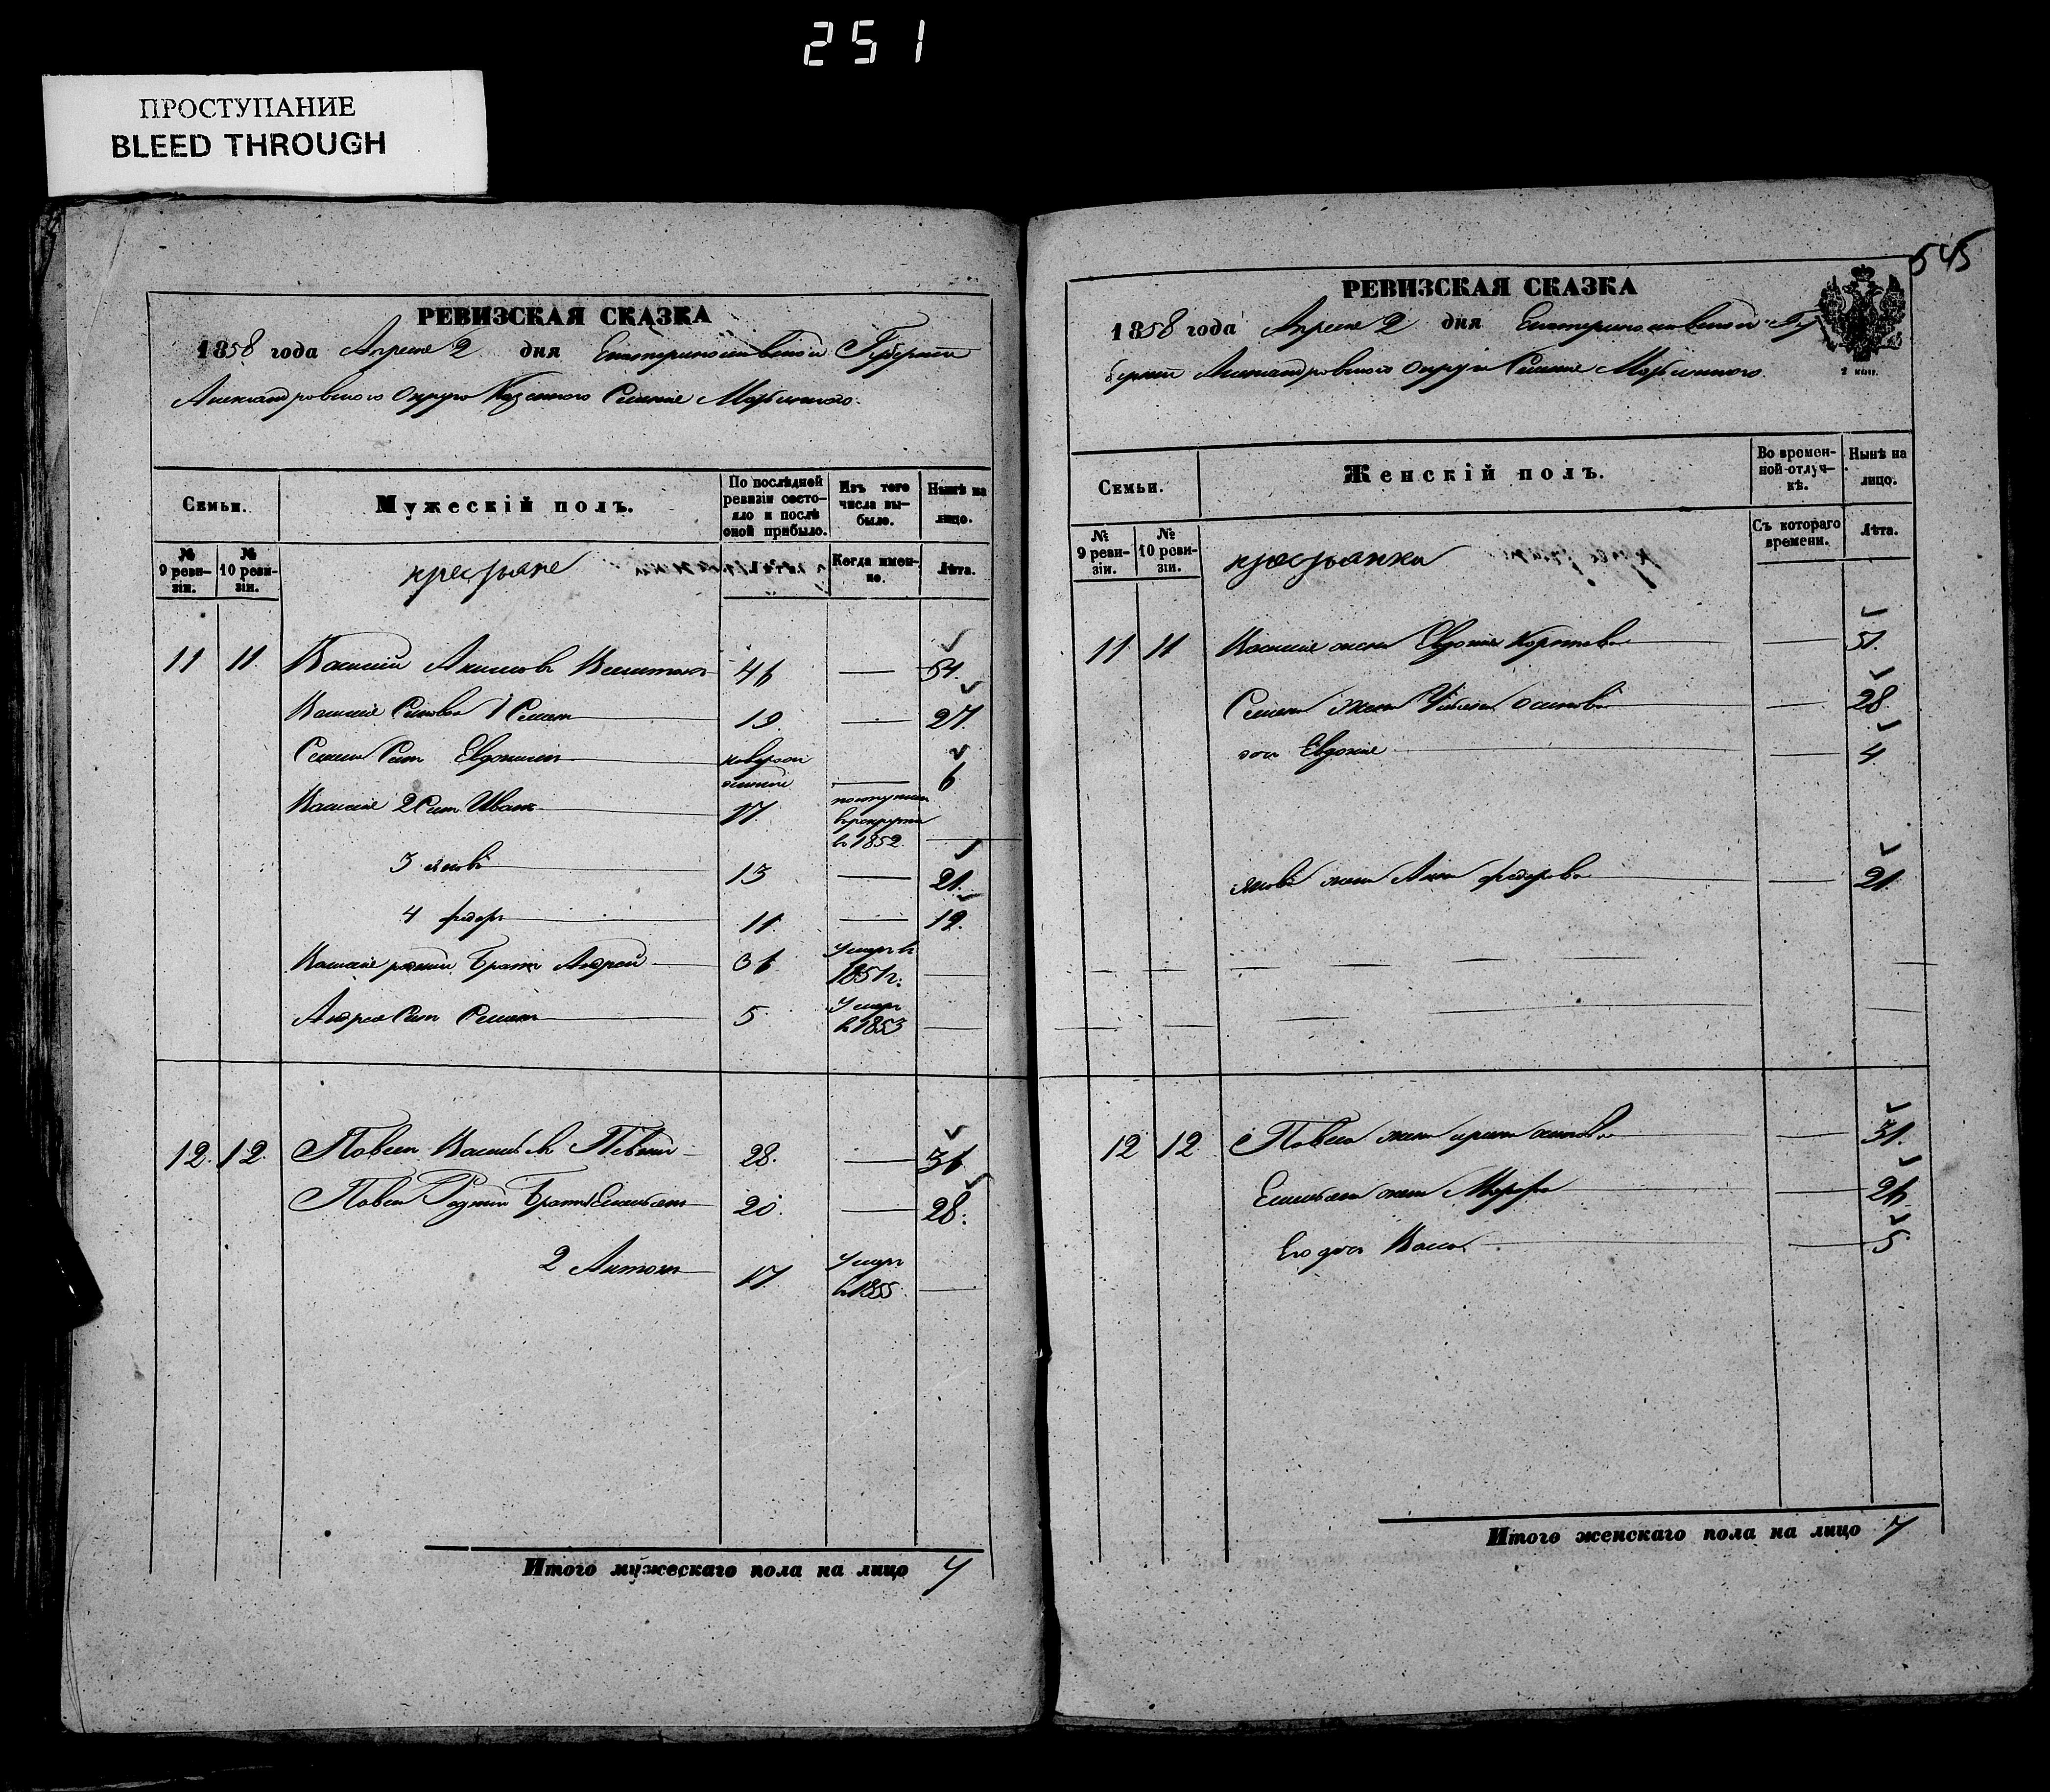 251
ПРОСТУПАНИЕ
BLEED THROUGH
РЕВИЗСКАЯ СКАЗКА
1858 года Апреля 2 дня Екатеринославской Губернии
Александровского округа Казенного Селения Марьинского.
Семьи.
Мужескій полъ.
По послѣдней ревизіи состояло и послѣ оной прибыло.
Изъ того числа выбыло.
Нынѣ на лицо.
№ 9 ревизіи.
№ 10 ревизіи.
крестьяне
Когда именно.
Лѣта.
11 11. Василий Акимовъ 46 — 54.
Василия Сыновья 1 Семенъ 19 — 27.
Семена Сынъ Евдокимъ новорожденный — 6
Василия 2 Сынъ Иванъ 17 поступилъ в рекруты в 1852 —
3 Яковъ 13 — 21.
4 федоръ 11 — 19.
Василия родный Братъ Андрей 36 Умеръ в —
Андрея Сынъ Семенъ 5 Умеръ в 1853 —
12. 12. Павелъ Васильевъ 28. — 36
Павла Родный Братъ Емельянъ 20. — 28.
2 Антонъ 17. Умеръ в 1855 —
Итого мужескаго пола на лицо 7
545
РЕВИЗСКАЯ СКАЗКА
1858 года Апреля 2 дня Екатеринославской Гу
бернии Александровского округа Селения Марьинского.
Семьи.
Женскій полъ.
Во временной отлучкѣ.
Нынѣ на лицо.
№ 9 ревизіи.
№ 10 ревизіи.
крестьянки
Съ котораго времени.
Лѣта.
11 11 Василия жена Евдокия — 51.
Семена жена — 28.
дочь Евдокия — 4
Якова жена Анна федорова — 21.
12 12 Павла жена — 31.
Емельяна жена Марфа — 26
Его дочь — 5
Итого женскаго пола на лицо 7